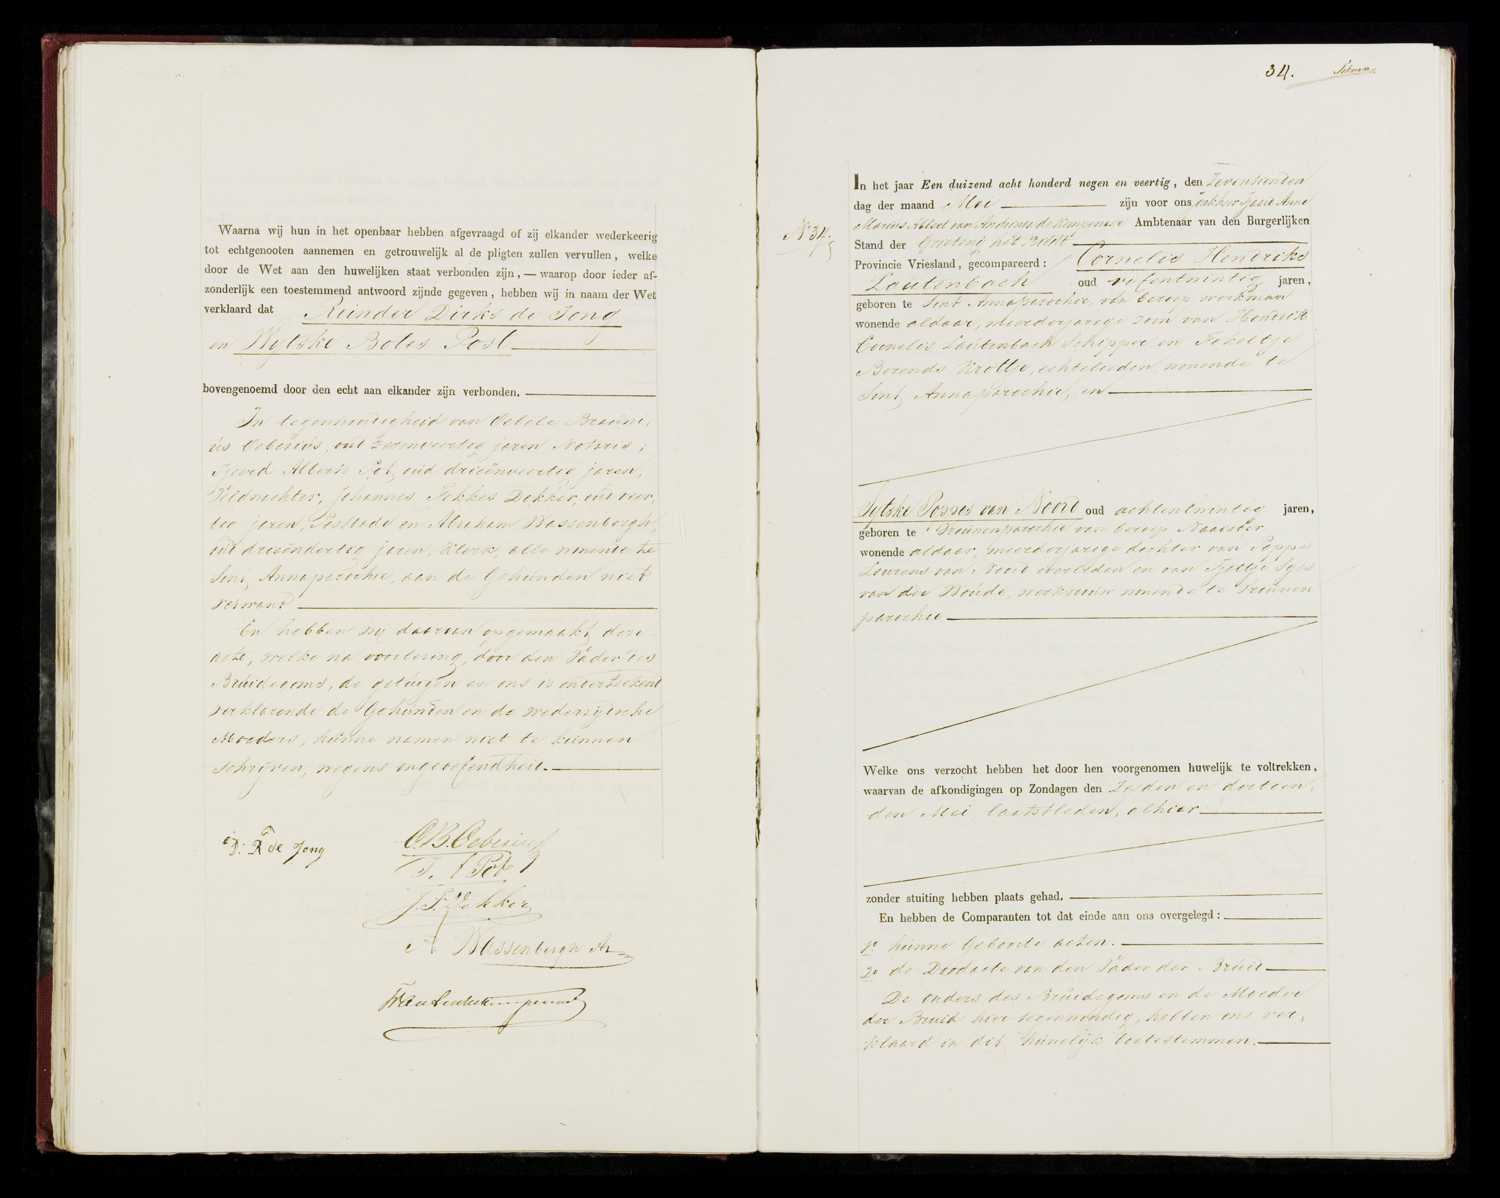 Waarna wij hun in het openbaar hebben afgevraagd of zij elkander wederkeerig
tot echtgenooten aannemen en getrouwelijk al de pligten zullen vervullen, welke
door de Wet aan den huwelijken staat verbonden zijn, — waarop door ieder af-
zonderlijk een toestemmend antwoord zijnde gegeven, hebben wij in naam der Wet
verklaard dat Reinder Dirks de Jong
en Wytske Botes Post
bovengenoemd door den echt aan elkander zijn verbonden.
In tegenwoordigheid van Oebele
oud jaren Notaris,
Sjoerd Alberts Pot, oud drieënveertig jaren,
Veldwachter, Johannes Fekkes Dekker, oud veer-
tig jaren, en Abraham Wassenbergh,
oud drieëndertig jaren, Klerk, alle wonende te
Sint Annaparochie, aan de Gehuwden niet
verwant
En hebben wij daarvan opgemaakt deze
acte, welke na voorlezing, door den Vader des
Bruidegoms, de getuigen en ons is onderteekend
verklarende de Gehuwden en de wederzijdsche
Moeders, hunne namen niet te kunnen
schrijven, wegens ongeoefendheid.
D: R de Jong
T. A Pot
J. F. Dekker
A Wassenbergh
34.
N 34.
In het jaar Een duizend acht honderd negen en veertig, den Zeventienden
dag der maand Mei zijn voor ons,
Ambtenaar van den Burgerlijken
Stand der Grietenij het Bildt
Provincie Vriesland, gecompareerd: Cornelis Hendriks
Lautenbach oud vijfentwintig jaren,
geboren te Sint Annaparochie, van beroep werkman
wonende aldaar, meerderjarige zoon van Hendrik
Cornelis Lautenbach Schipper en
Berends Krottje, echtelieden wonende te
Sint Annaparochie, en
Sytske Posses van Noord oud achtentwintig jaren,
geboren te Vrouwenparochie van beroep Naaister
wonende aldaar, meerderjarige dochter van
Lourens van Noord overleden en van
van der Woude, werkvrouw wonende te Vrouwen
parochie
Welke ons verzocht hebben het door hen voorgenomen huwelijk te voltrekken,
waarvan de afkondigingen op Zondagen den Zesden en dertien-
den Mei laatstleden, alhier
zonder stuiting hebben plaats gehad.
En hebben de Comparanten tot dat einde aan ons overgelegd:
1º hunne Geboorte acten.
2º de Doodacte van den Vader der Bruid
De ouders des Bruidegoms en de Moeder
der Bruid hier tegenwoordig, hebben ons ver-
klaard in dit huwelijk toetestemmen.